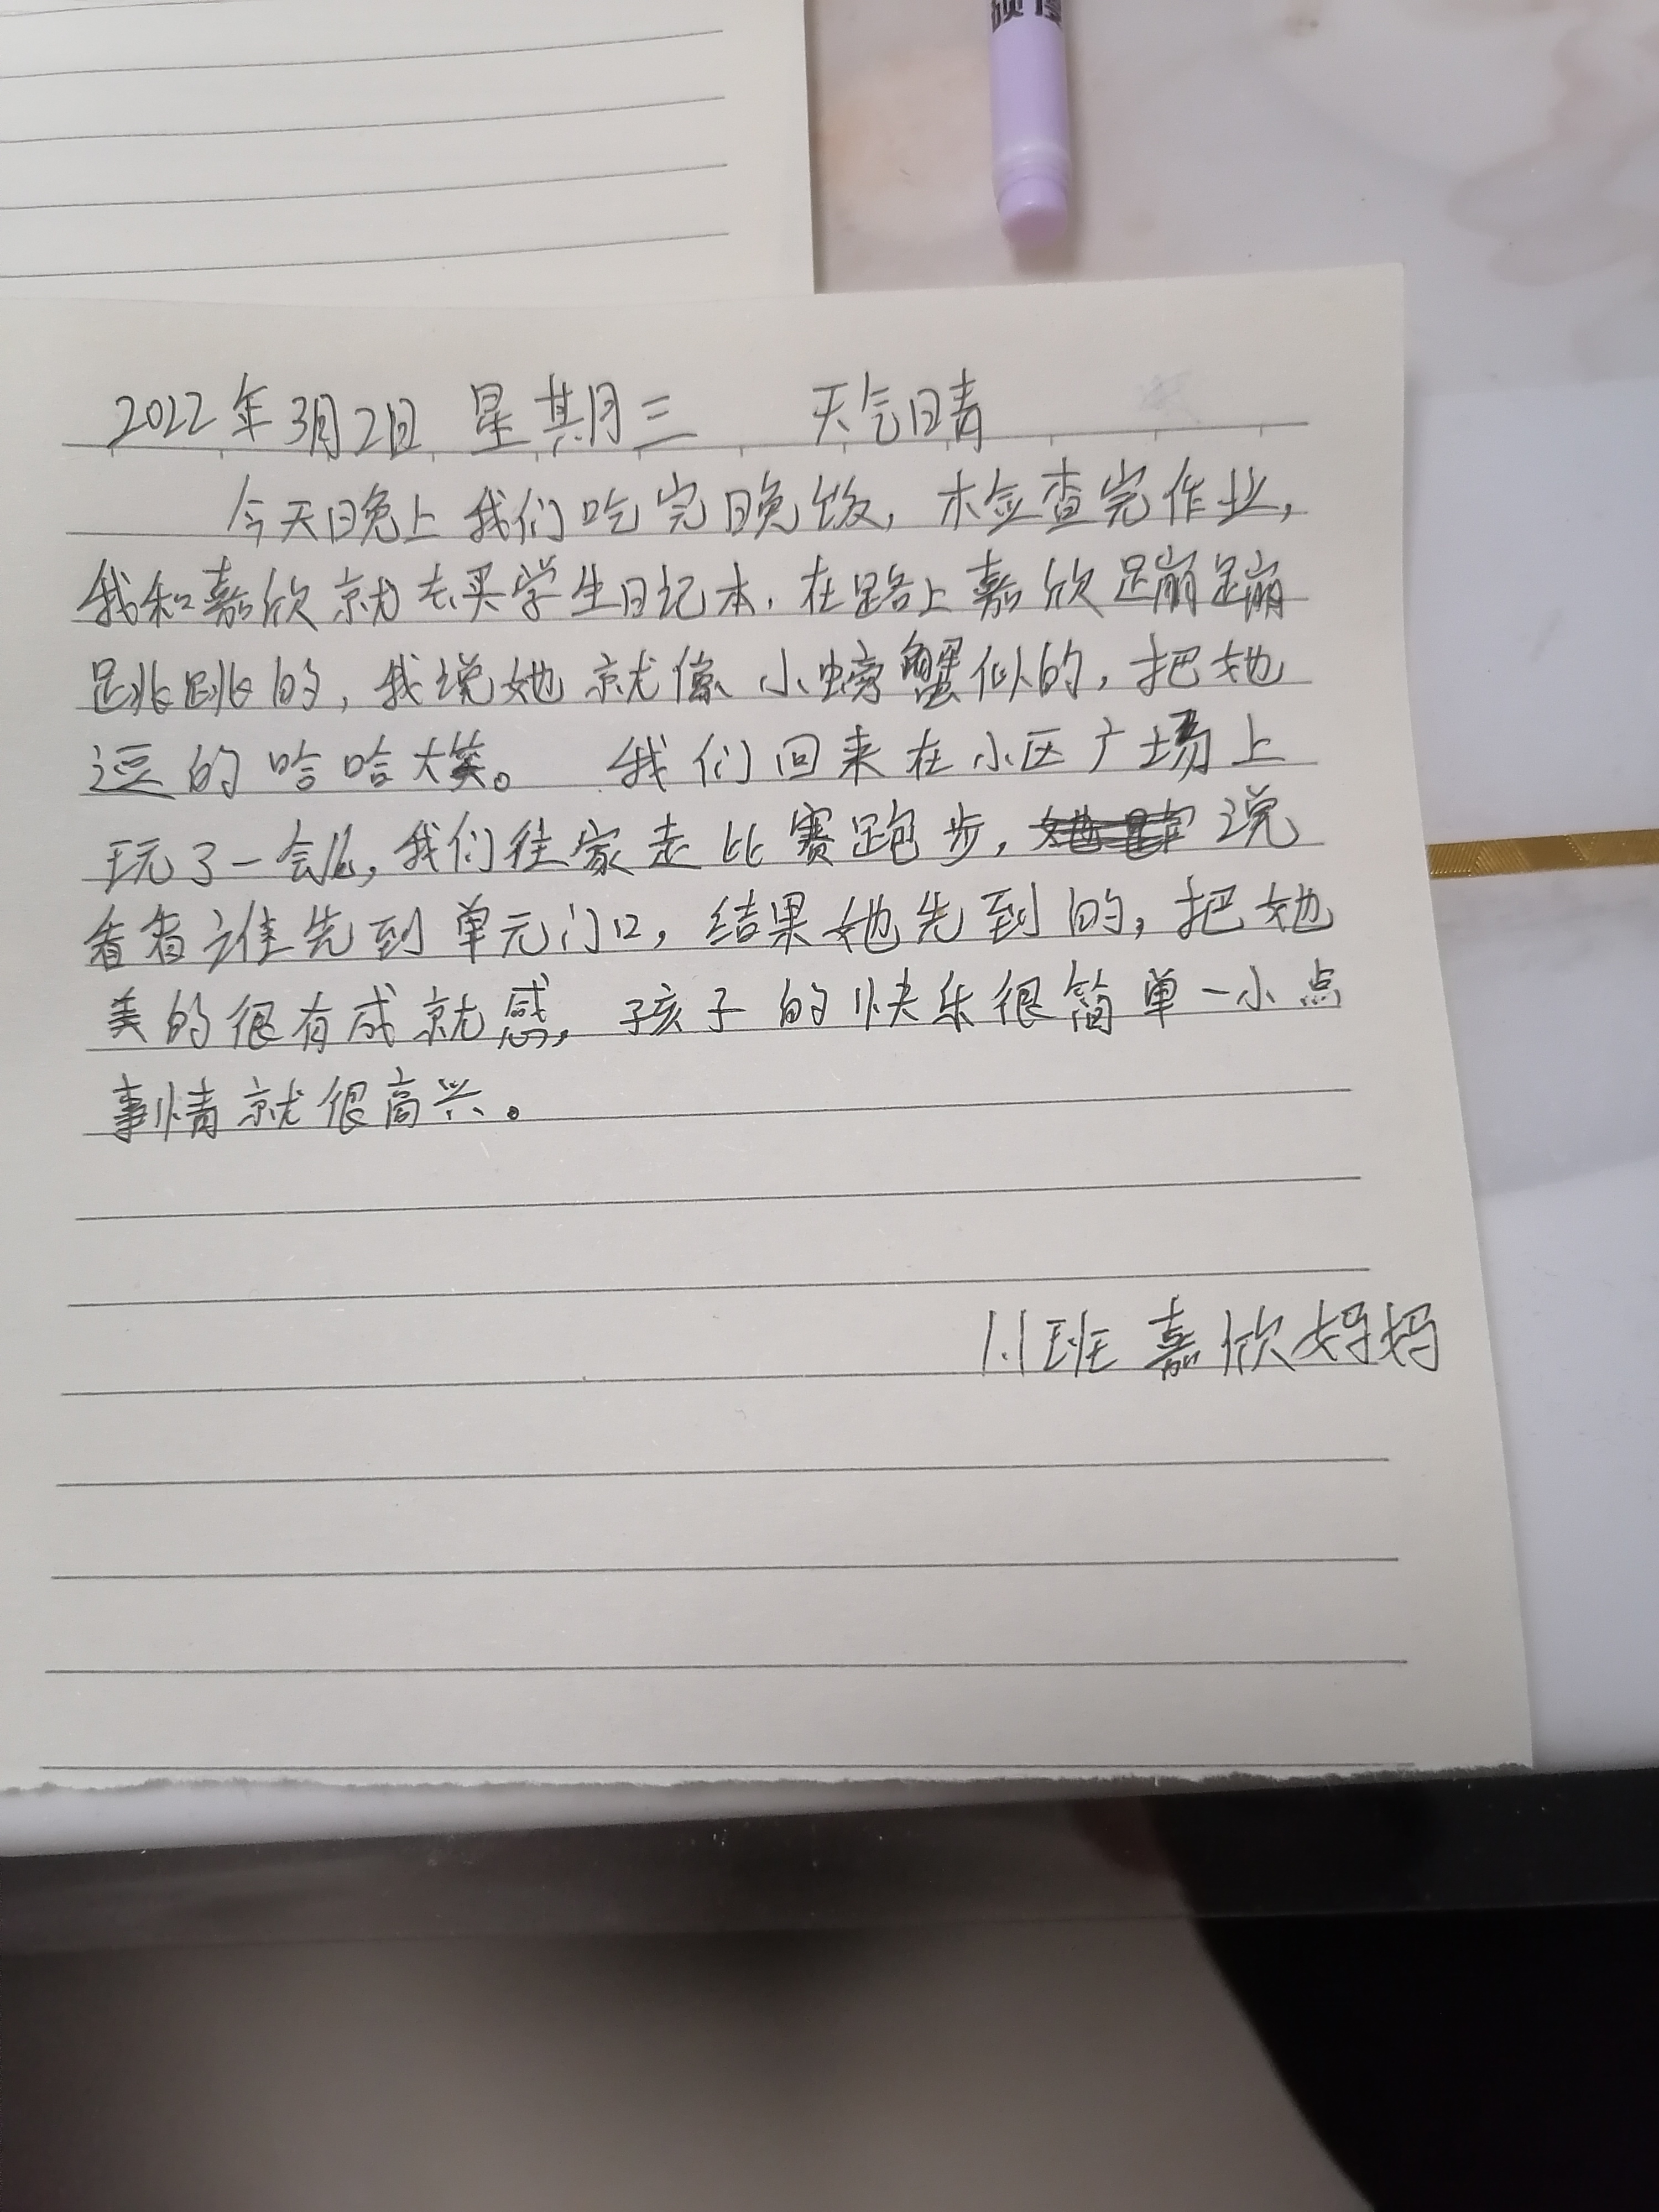 2022年3月2日 星期三 天气晴
今天晚上我们吃完晚饭，检查完作业，
我和嘉欣就去买学生日记本，在路上嘉欣蹦蹦
跳跳的，我说她就像小螃蟹似的，把她
逗的哈哈大笑。 我们回来在小区广场上
玩了一会儿，我们往家走比赛跑步，说
看看谁先到单元门口，结果她先到的，把她
美的很有成就感，孩子的快乐很简单一小点
事情就很高兴。
1.1班 嘉欣妈妈